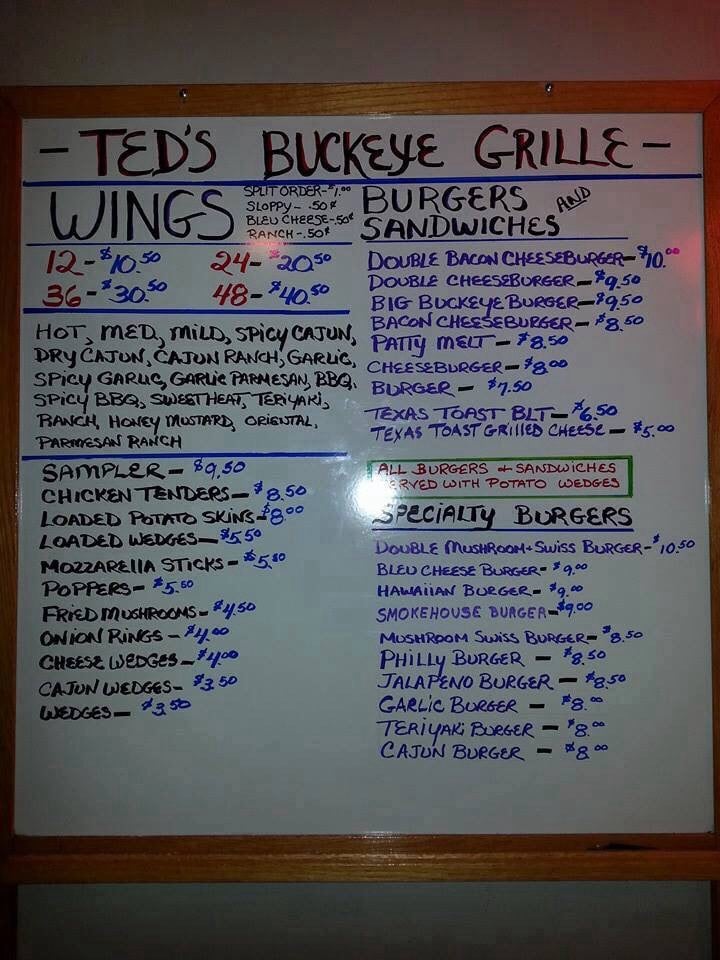 - TED'S BUCKEYE GRILLE -
WINGS
SPLIT ORDER-$1.00
SLOPPY- .50¢
BLEU CHEESE-.50¢
RANCH-.50¢
12-$10.50 24-$20.50
36-$30.50 48-$40.50
HOT, MED, MILD, SPICY CAJUN,
DRY CAJUN, CAJUN RANCH, GARLIC,
SPICY GARLIC, GARLIC PARMESAN, BBQ,
SPICY BBQ, SWEET HEAT, TERIYAKI,
RANCH, HONEY MUSTARD, ORIENTAL,
PARMESAN RANCH
SAMPLER- $9.50
CHICKEN TENDERS- $8.50
LOADED POTATO SKINS-$8.00
LOADED WEDGES-$5.50
MOZZARELLA STICKS-$5.50
POPPERS- $5.50
FRIED MUSHROOMS- $4.50
ONION RINGS - $4.00
CHEESE WEDGES-$4.00
CAJUN WEDGES- $3.50
WEDGES- $3.50
BURGERS AND
SANDWICHES
DOUBLE BACON CHEESEBURGER-$10.00
DOUBLE CHEESEBURGER-$9.50
BIG BUCKEYE BURGER-$9.50
BACON CHEESEBURGER-$8.50
PATTY MELT-$8.50
CHEESEBURGER-$8.00
BURGER - $7.50
TEXAS TOAST BLT-$6.50
TEXAS TOAST GRILLED CHEESE-$5.00
ALL BURGERS + SANDWICHES
SERVED WITH POTATO WEDGES
SPECIALTY BURGERS
DOUBLE MUSHROOM+SWISS BURGER-$10.50
BLEU CHEESE BURGER-$9.00
HAWAIIAN BURGER-$9.00
SMOKEHOUSE BURGER-$9.00
MUSHROOM SWISS BURGER-$8.50
PHILLY BURGER - $8.50
JALAPENO BURGER - $8.50
GARLIC BURGER - $8.00
TERIYAKI BURGER - $8.00
CAJUN BURGER - $8.00